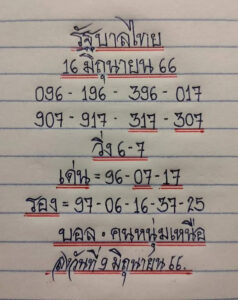 รัฐบาลไทย
16 มิถุนายน 66
096 - 196 - 396 - 017
907 - 917 - 317 - 307
วิ่ง 6 - 7
เด่น = 96 - 07 - 17
รอง = 97 - 06 - 16 - 37 - 25
บอล . คนหนุ่มเหนือ
ลงวันที่ 9 มิถุนายน 66.